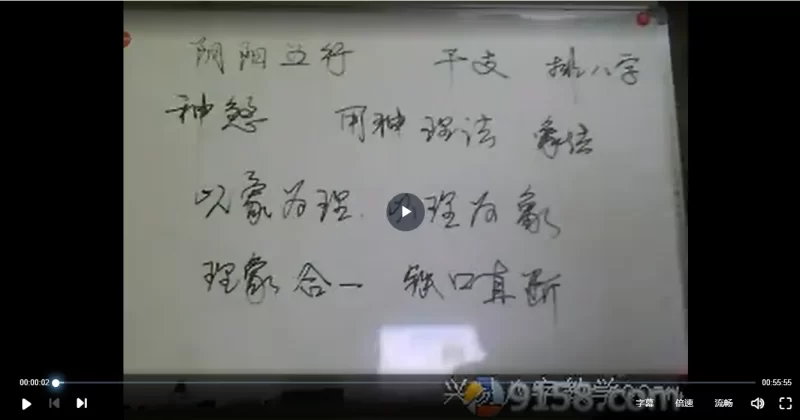 阴阳五行 干支 排八字
神煞 用神 理法 象法
以象为理 以理为象
理象合一 铁口直断
9158.com
00:00:02 00:55:55
字幕 倍速 流畅